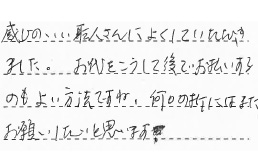 感じのいい職人さんによくしていただき
ました。お代をこうして後でお払いする
のもよい方法ですね。何かの折にはまた
お願いしたいと思います